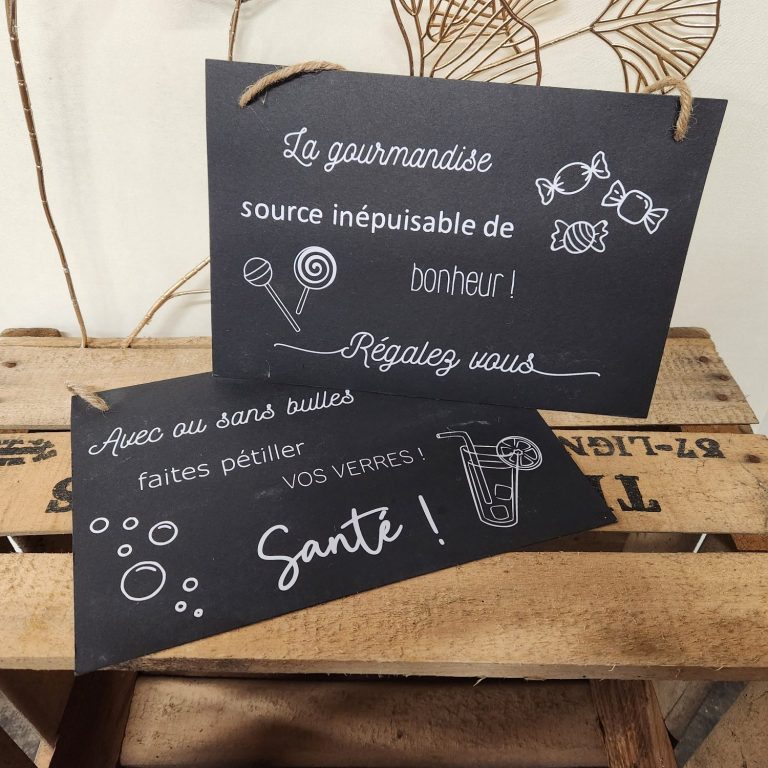 La gourmandise
source inépuisable de
bonheur !
Régalez vous
Avec ou sans bulles
faites pétiller
VOS VERRES !
Santé !
57-LIGN